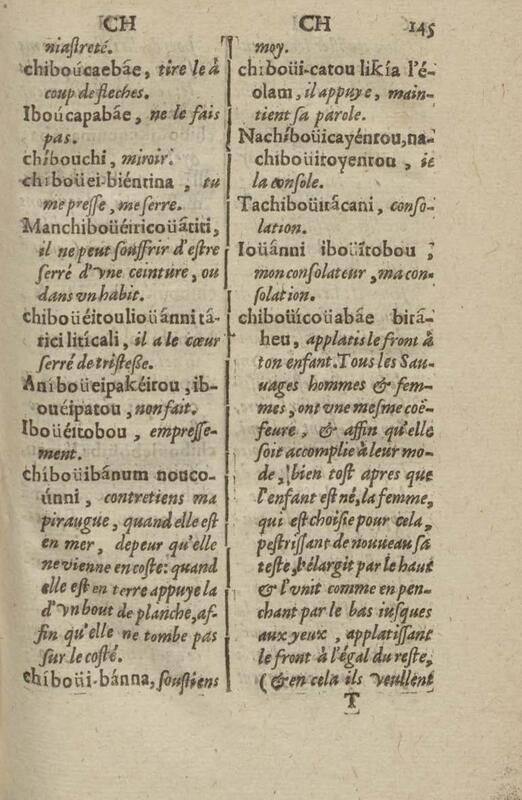 CH CH 145
niastreté.
chiboúcaebâe, tire le à
coup de fleches.
Iboúcapabâe, ne le fais
pas.
chíbouchi, miroir.
chiboüei-biéntina, tu
me presse, me serre.
Manchiboüéiricoüátiti,
il ne peut souffrir d'estre
serré d'vne ceinture, ou
dans vn habit.
chiboüéitoulioüánni tá-
rici liticali, il a le cœur
serré de tristesse.
Aníboüeipakéirou, ib-
ouéipatou, non fait.
Iboüéitobou, empresse-
ment.
chíboüibânum nouco-
únni, contretiens ma
piraugue, quand elle est
en mer, de peur qu'elle
ne vienne en coste: quand
elle est en terre appuye la
d'vn bout de planche, af-
fin qu'elle ne tombe pas
sur le costé.
chíboüi-bánna, soustiens
moy.
chiboüi-catou likía l'é-
olam, il appuye, main-
tient sa parole.
Nachíboüicayéntou, na-
chiboüitoyentou, ie
la console.
Tachiboüitâcani, conso-
lation.
Ioüánni iboüitobou,
mon consolateur, ma con-
solation.
chiboüícoüabâe birá-
heu, applatis le front à
ton enfant. Tous les Sau-
uages hommes & fem-
mes, ont vne mesme coë-
feure, & affin qu'elle
soit accomplie à leur mo-
de, bien tost apres que
l'enfant est né, la femme,
qui est choisie pour cela,
pestrissant de nouueau sa
teste, l'élargit par le haut
& l'vnit comme en pen-
chant par le bas iusques
aux yeux, applatissant
le front à l'égal du reste,
(& en cela ils veullent
T